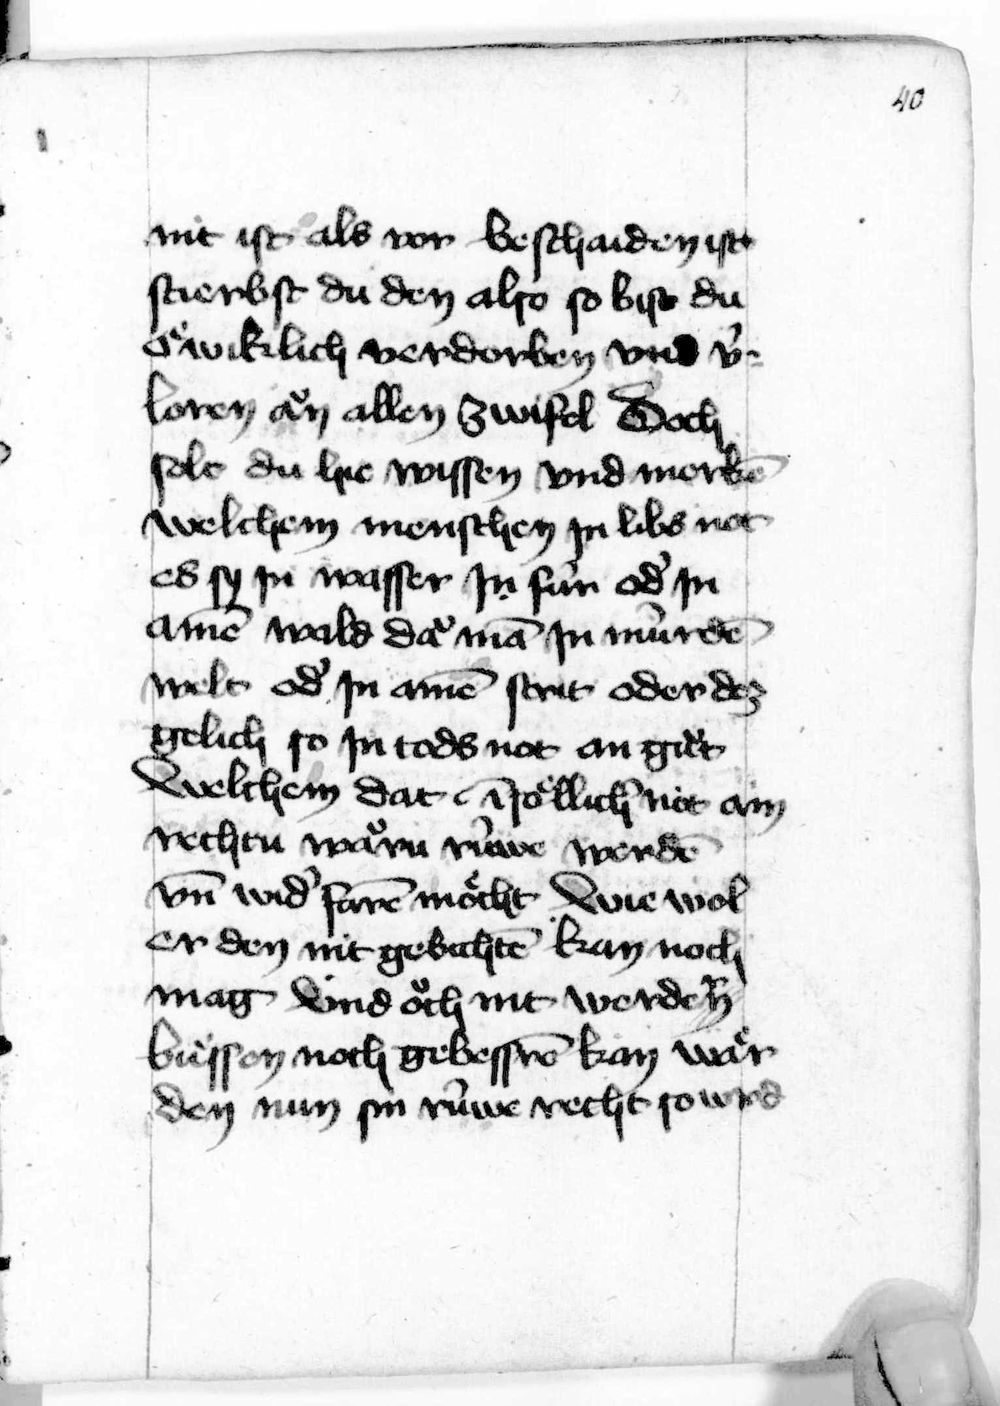 40
nit ist als vor beschaiden ist
stierbst du den also so bist du
oͤwiklich verdorben vnd v̉⸗
loren aͧn allen zwifel Doch
solt du hie wissen vnd merkē
welchem menschen jn libs not
es sy jn wasser jn fúr od̉ jn
aimē wald daͧ mā jn múrdē
welt od̉ jn aimē strit oder dez
gelich so jn tods not an gaͧt
Welchem dat nit ain
rechtu waͧru rúwe werdē
vn̄ wid̉ farē moͤcht Wie wol
er den nit gebichtē kan noch
mag Vnd oͧch nit werden
buͤssen noch gebessrē kan waͤr
den nun sin rúwe recht so wird